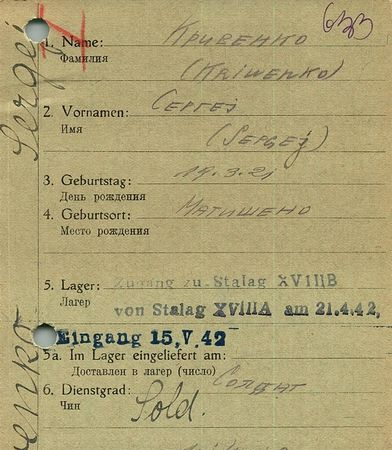 633
1. Name: Кривенко
Фамилия
(Kriwenko)
2. Vornamen: Сергеj
Имя
(Sergej)
3. Geburtstag: 17.3.21
День рождения
4. Geburtsort: Матишено
Место рождения
5. Lager: Zugang zu Stalag XVIIB
Лагер
von Stalag XVIIIA am 21.4.42,
Eingang 15.V.42
5a. Im Lager eingeliefert am:
Доставлен в лагер (число)
6. Dienstgrad: Солдат
Чин
Sold.
Sergej
enko